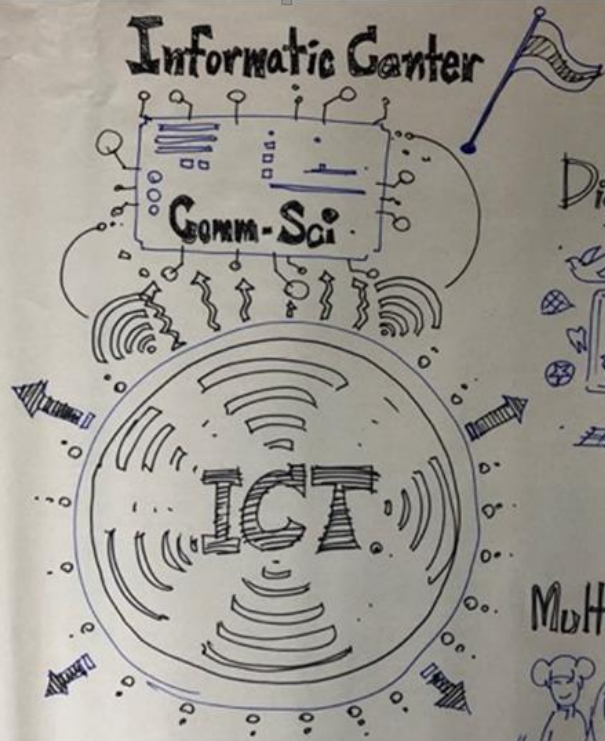 Informatic Center
Comm-Sci
ICT